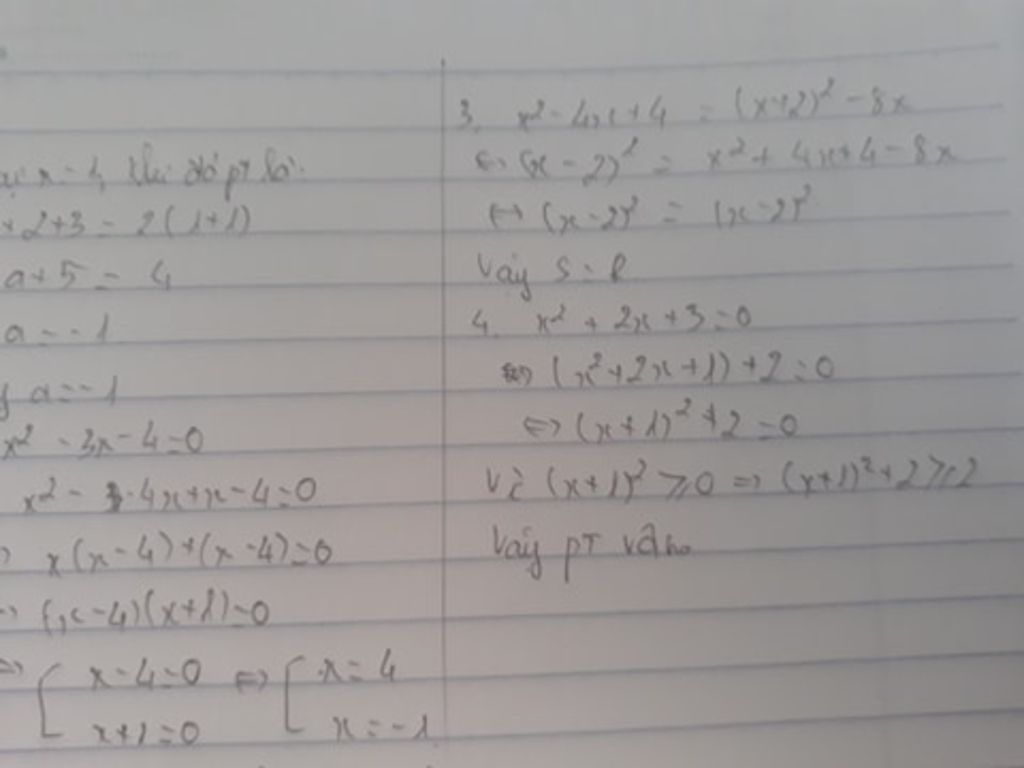 x = 1, khi đó pt là:
+ 2 + 3 = 2(1+1)
a + 5 = 4
a = -1
a = -1
x² - 3x - 4 = 0
x² - 4x + x - 4 = 0
x(x - 4) + (x - 4) = 0
(x - 4)(x + 1) = 0
⇔ [ x - 4 = 0 ⇔ [ x = 4
x + 1 = 0 x = -1
3. x² - 4x + 4 = (x+2)² - 8x
⇔ (x - 2)² = x² + 4x + 4 - 8x
⇔ (x - 2)² = (x - 2)²
Vậy S = R
4. x² + 2x + 3 = 0
⇔ (x² + 2x + 1) + 2 = 0
⇔ (x + 1)² + 2 = 0
Vì (x + 1)² ⩾ 0 ⇒ (x + 1)² + 2 ⩾ 2
Vậy pT vô no